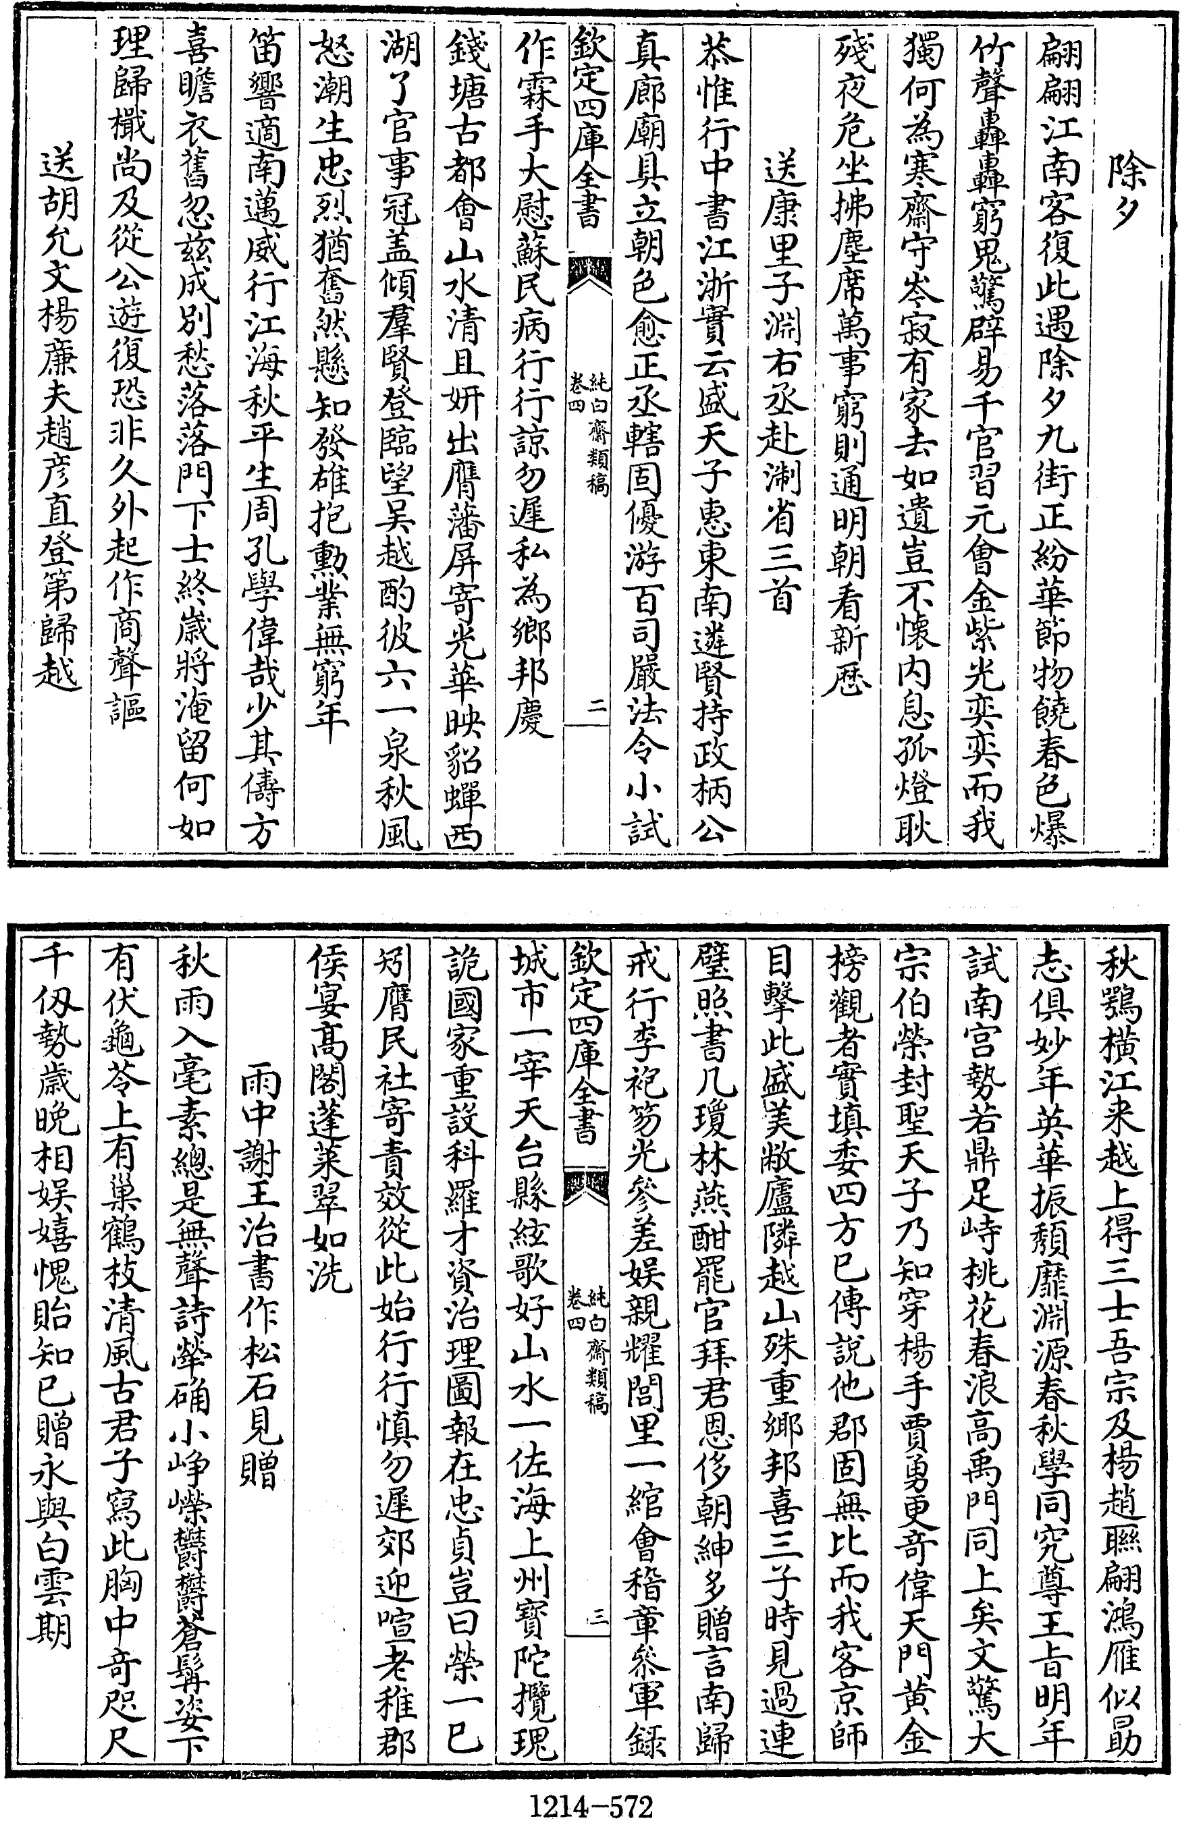 除夕
翩翩江南客復此遇除夕九街正紛華節物饒春色爆
竹聲轟轟窮鬼驚辟易千官習元會金紫光奕奕而我
獨何為寒齋守岑寂有家去如遺豈不懷内息孤燈耿
殘夜危坐拂塵席萬事窮則通明朝看新厯
送康里子淵右丞赴淛省三首
恭惟行中書江浙實云盛天子惠東南遴賢持政柄公
真廊廟具立朝色愈正丞轄固優游百司嚴法令小試
欽定四庫全書
純白齋類稿
卷四
二
作霖手大慰蘇民病行行諒勿遲私為鄉邦慶
錢塘古都會山水清且妍出膺藩屏寄光華映貂蟬西
湖了官事冠盖傾羣賢登臨望吴越酌彼六一泉秋風
怒潮生忠烈猶奮然懸知發雄抱勲業無窮年
笛響適南邁威行江海秋平生周孔學偉哉少其儔方
喜瞻衣舊忽兹成别愁落落門下士終歳將淹留何如
理歸檝尚及從公遊復恐非久外起作商聲謳
送胡允文楊亷夫趙彦直登第歸越
秋鶚横江来越上得三士吾宗及楊趙聯翩鴻雁似勗
志俱妙年英華振頽靡淵源春秋學同究尊王旨明年
試南宫勢若鼎足峙桃花春浪高禹門同上矣文驚大
宗伯榮封聖天子乃知穿楊手賈勇更奇偉天門黄金
榜觀者實填委四方已傳説他郡固無比而我客京師
目擊此盛美敝廬隣越山殊重鄉邦喜三子時見過連
璧照書几瓊林燕酣罷官拜君恩侈朝紳多贈言南歸
戒行李袍笏光參差娱親耀閭里一綰會稽章叅軍録
欽定四庫全書
純白齋類稿
卷四
三
城市一宰天台縣絃歌好山水一佐海上州寳陀攬瑰
詭國家重設科羅才資治理圖報在忠貞豈曰榮一已
矧膺民社寄責效從此始行行慎勿遲郊迎喧老稚郡
侯宴髙閣蓬萊翠如洗
雨中謝王治書作松石見贈
秋雨入毫素總是無聲詩犖确小崢嶸欝欝蒼髯姿下
有伏龜苓上有巢鶴枝清風古君子寫此胸中奇咫尺
千仭勢歳晚相娱嬉愧貽知已贈永與白雲期
1214-572